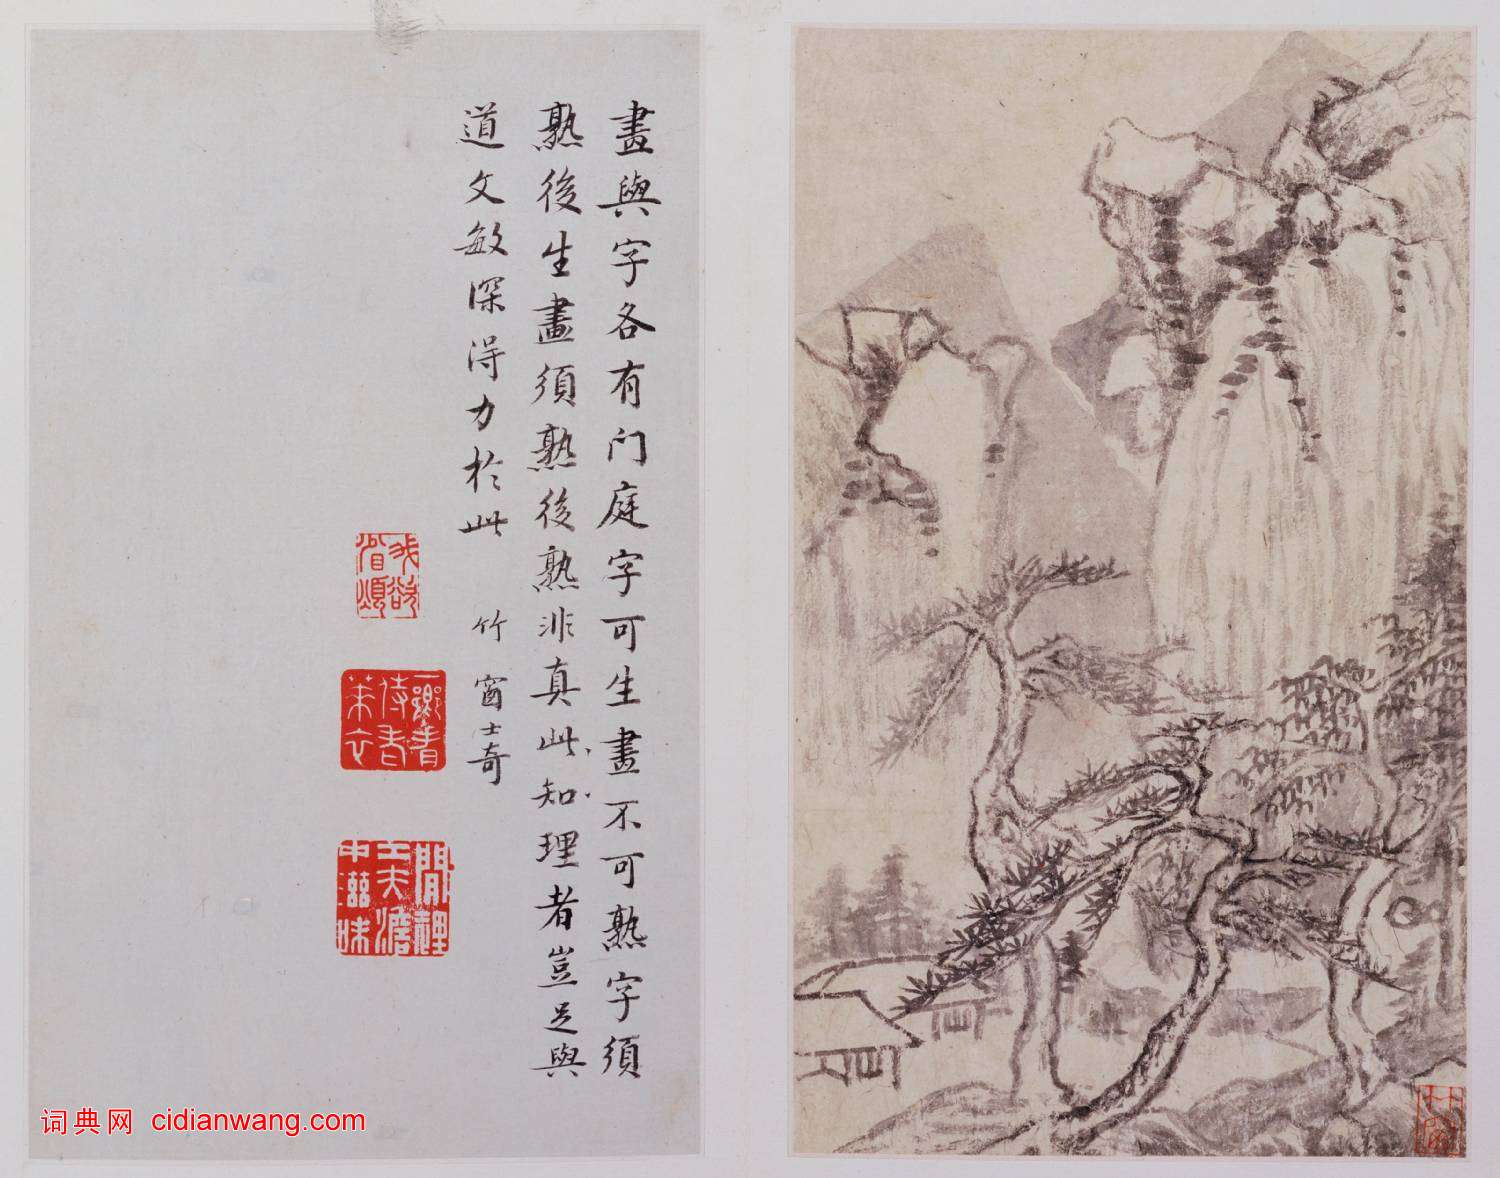 畫與字各有门庭字可生畫不可熟字須
熟後生畫須熟後熟非真此知理者豈足與
道文敏深得力於此 竹窗士奇
一鄉看侍老萊衣
閒裡工夫澹中滋味
词典网 cidianwang.com